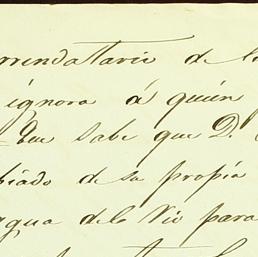 rrendatario de l
ignora á quién
Que sabe que D.
biado de su propia
agua del Rio para